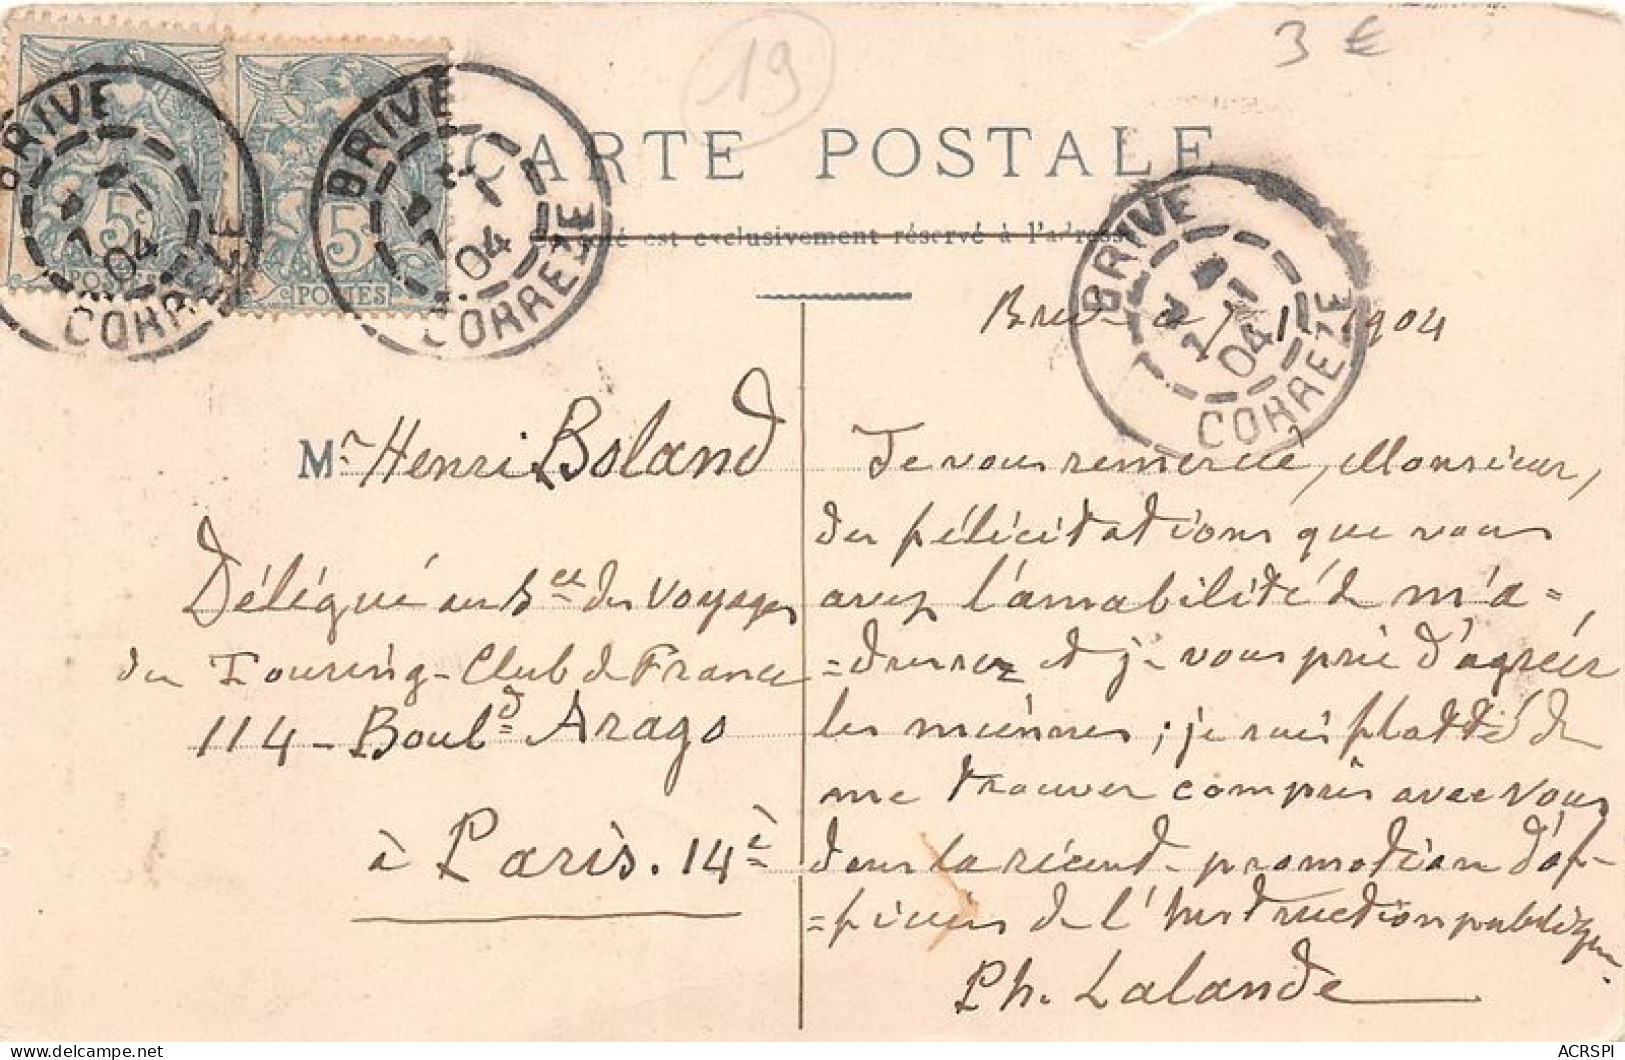 3 €
19
CARTE POSTALE
côté est exclusivement réservé à l'adresse
BRIVE
CORREZE
04
5c
POSTES
BRIVE
CORREZE
04
5c
POSTES
BRIVE
CORREZE
04
Brive 1904
Mr Henri Boland
Délégué au Sce des Voyages
du Touring-Club de France
114 - Bould Arago
à Paris. 14è
Je vous remercie, Monsieur,
des félicitations que vous
avez l'amabilité de m'a=
=dresser et je vous prie d'agréer
les miennes ; je suis flatté de
me trouver compris avec vous
dans la récente promotion d'of-
=ficiers de l'Instruction publique.
Ph. Lalande
ACRSPI